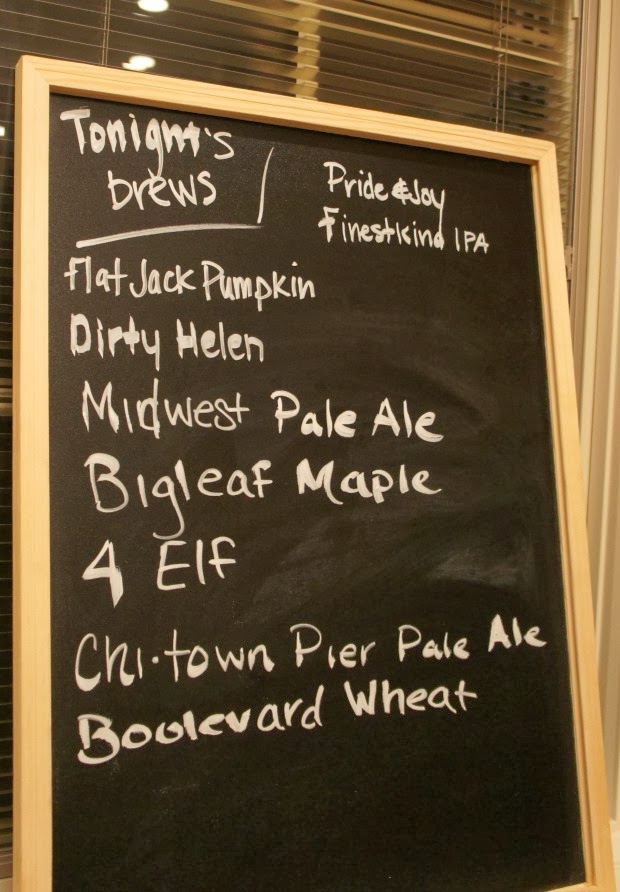 Tonight's
brews
Pride & Joy
Finestkind IPA
Flat Jack Pumpkin
Dirty Helen
Midwest Pale Ale
Bigleaf Maple
4 Elf
Chi-town Pier Pale Ale
Boulevard Wheat